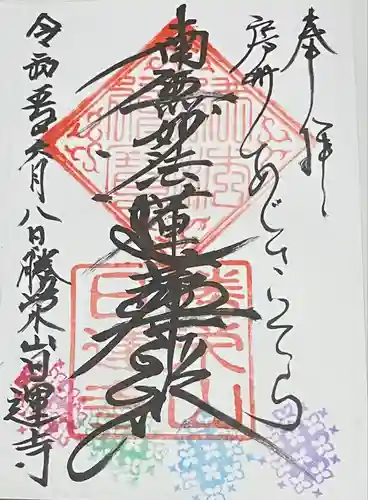 奉拝
房州あじさいでら
南無妙法蓮華経
令和五年六月八日勝栄山日運寺